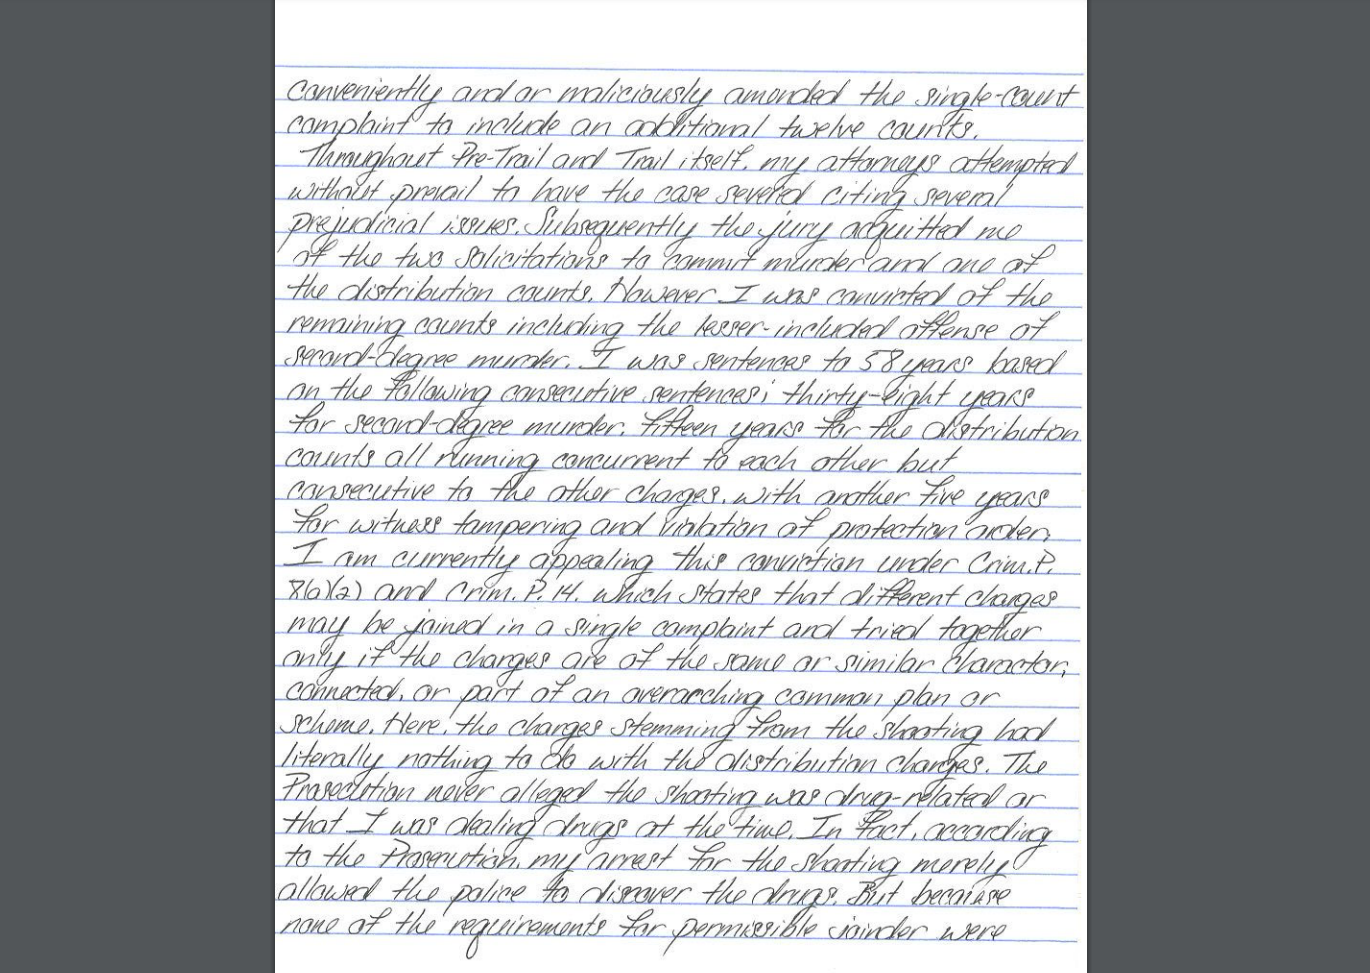 conveniently and or maliciously amended the single-count
complaint to include an additional twelve counts.
Throughout Pre-Trail and Trail itself, my attorneys attempted
without prevail to have the case severed citing several
prejudicial issues. Subsequently the jury acquitted me
of the two solicitations to commit murder and one of
the distribution counts. However I was convicted of the
remaining counts including the lesser-included offense of
second-degree murder. I was sentences to 58 years based
on the following consecutive sentences; thirty-eight years
for second-degree murder. fifteen years for the distribution
counts all running concurrent to each other but
consecutive to the other charges. with another five years
for witness tampering and violation of protection order.
I am currently appealing this conviction under Crim.P.
8(a)(2) and Crim. P. 14. which states that different charges
may be joined in a single complaint and tried together
only if the charges are of the same or similar character,
connected, or part of an overarching common plan or
scheme. Here, the charges stemming from the shooting had
literally nothing to do with the distribution charges. The
Prosecution never alleged the shooting was drug-related or
that I was dealing drugs at the time. In fact, according
to the Prosecution, my arrest for the shooting merely
allowed the police to discover the drugs. But because
none of the requirements for permissible joinder were